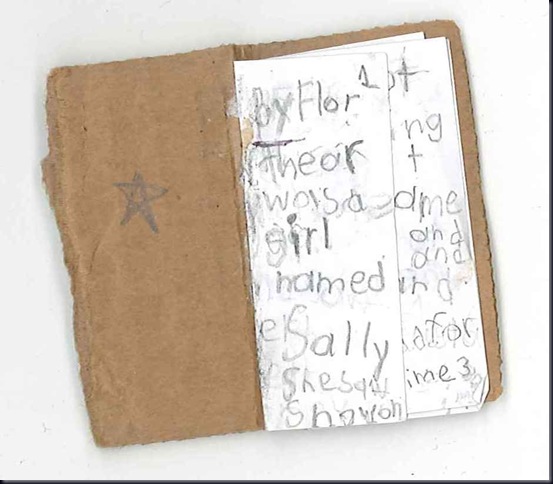 1
by Flor
thear
wosa
girl
named
Sally
she saw
Snowon
ot
ng
t
ame
and
and
ind
afor
ime 3